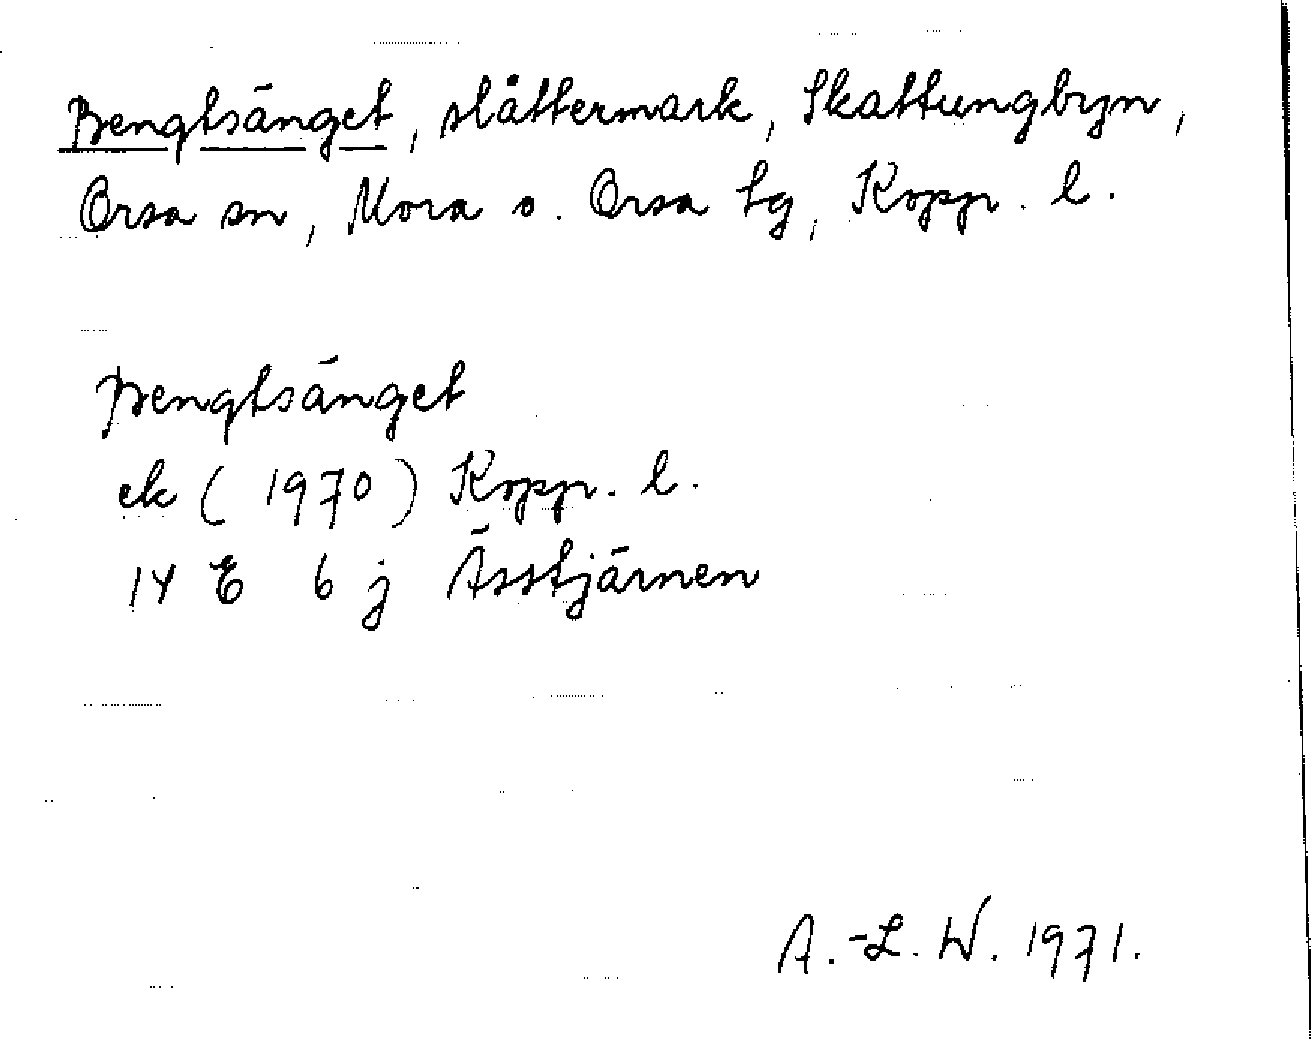 Bengtsänget, slåttermark, Skattungbyn,
Orsa sn, Mora o. Orsa tg, Kopp. l.
Bengtsänget
ek (1970) Kopp. l.
14 E 6 j Ässtjärnen
A.-L. W. 1971.